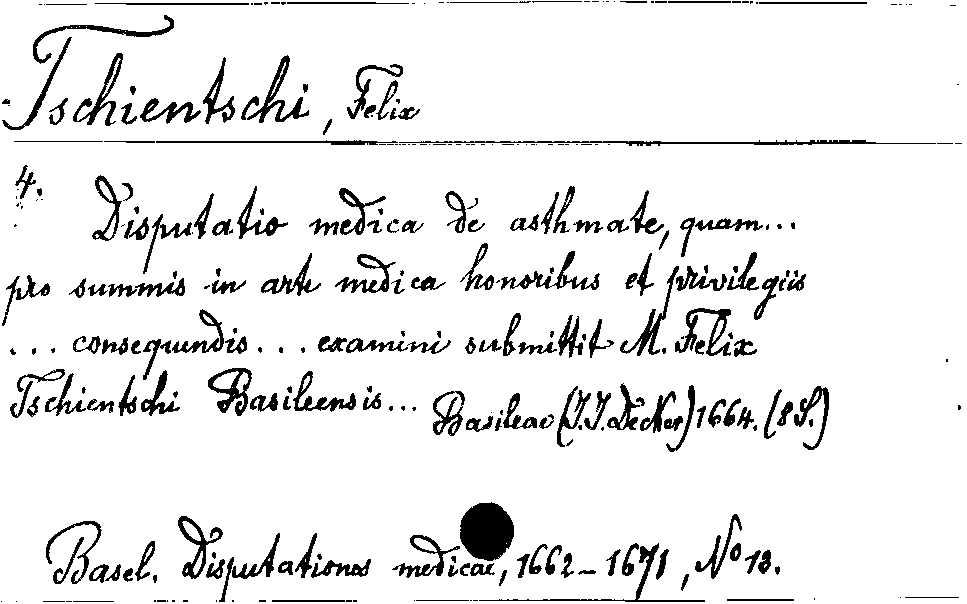 Tschientschi, Felix
4.
Disputatio medica de asthmate, quam...
pro summis in arte medica honoribus et privilegiis
... consequendis... examini submittit M. Felix
Tschientschi Basileensis... Basileae (J.J. Decker) 1664. (8 S.)
Basel. Disputationes medicae, 1662-1671, No 13.